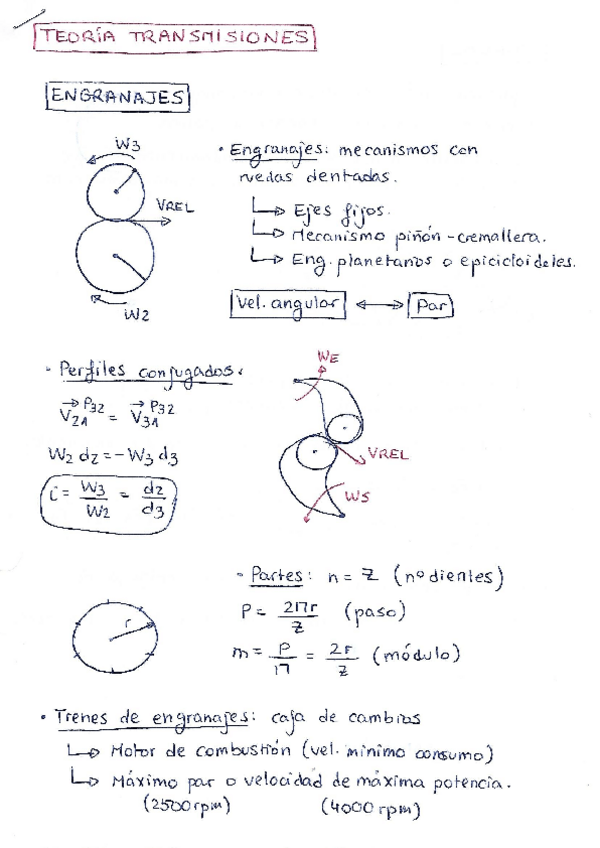 TEORÍA TRANSMISIONES
ENGRANAJES
W3
VREL
W2
• Engranajes: mecanismos con
ruedas dentadas.
↳ Ejes fijos.
↳ Mecanismo piñón-cremallera.
↳ Eng. planetarios o epicicloideles.
Vel. angular ↔ Par
• Perfiles conjugados.
V21^P32 = V31^P32
W2 d2 = - W3 d3
i = W3/W2 = d2/d3
WE
VREL
WS
• Partes: n = Z (nº dientes)
P = 2πr/Z (paso)
m = P/π = 2r/Z (módulo)
r
• Trenes de engranajes: caja de cambios
↳ Motor de combustión (vel. mínimo consumo)
↳ Máximo par o velocidad de máxima potencia.
(2500rpm) (4000rpm)